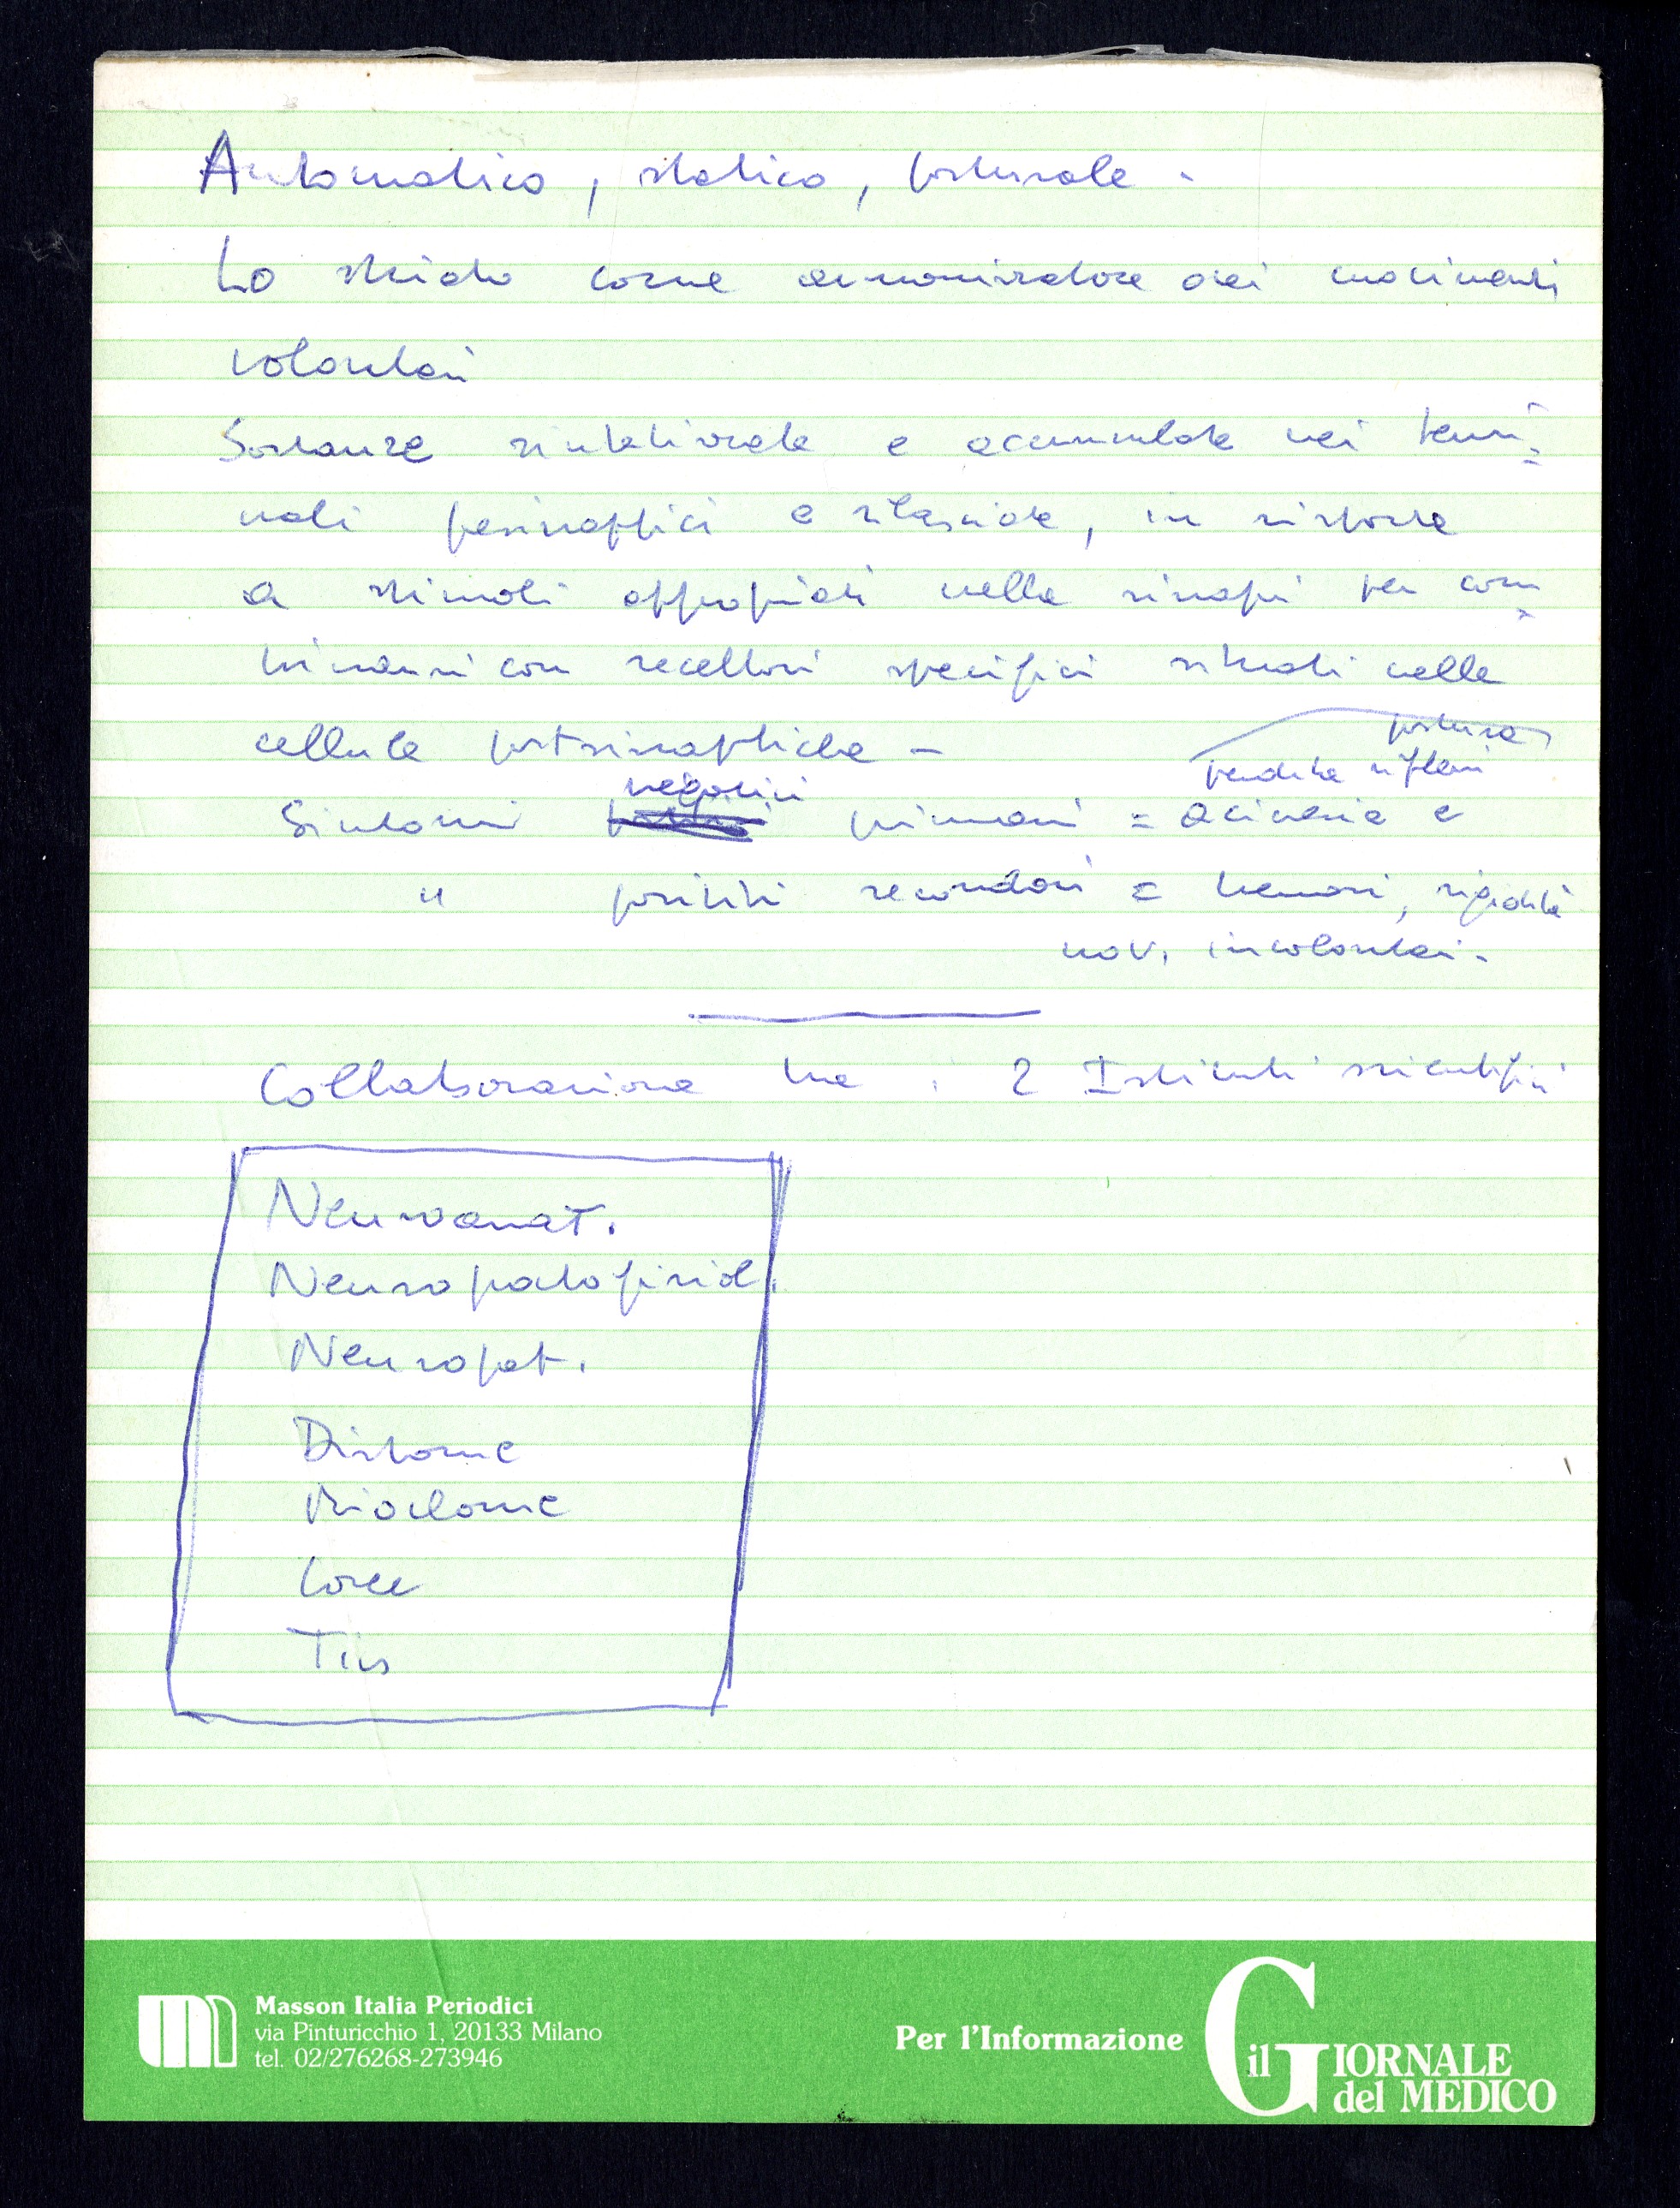 Automatico, statico, posturale -
Lo striato come armonizzatore dei movimenti
volontari
Sostanze sintetizzate e accumulate nei termi=
nali presinaptici e rilasciate, in risposta
a stimoli appropriati nella sinapsi per com=
binarsi con recettori specifici situati nelle
cellule postsinaptiche -
postura
negativi perdita riflessi
Sintomi primari = acinesia e
" positivi secondari = tremori, rigidità
mov. involontari -
Collaborazione tra : 2 Istituti scientifici
Neuroanat.
Neuropatofisiol.
Neuropat.
Distonie
Mioclonie
Coree
Tics
Masson Italia Periodici
via Pinturicchio 1, 20133 Milano
tel. 02/276268-273946
Per l'Informazione
il GIORNALE
del MEDICO